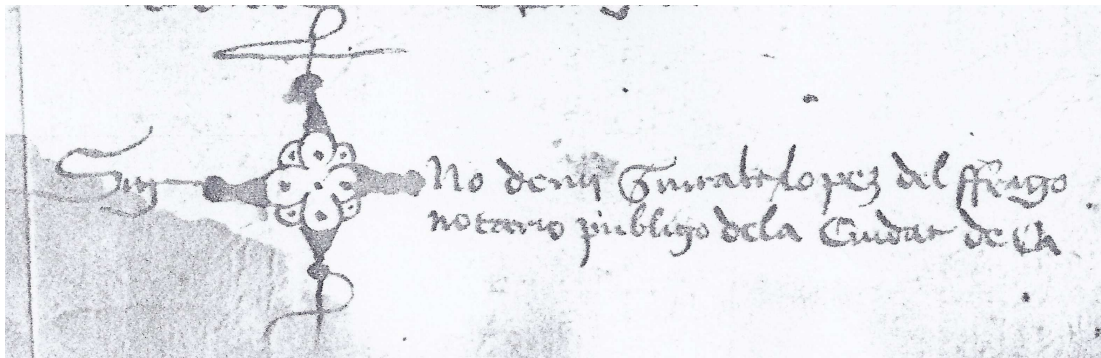 Sig no de mi Guiralt lopez del ffrago
notario publigo dela Ciudat de Ça